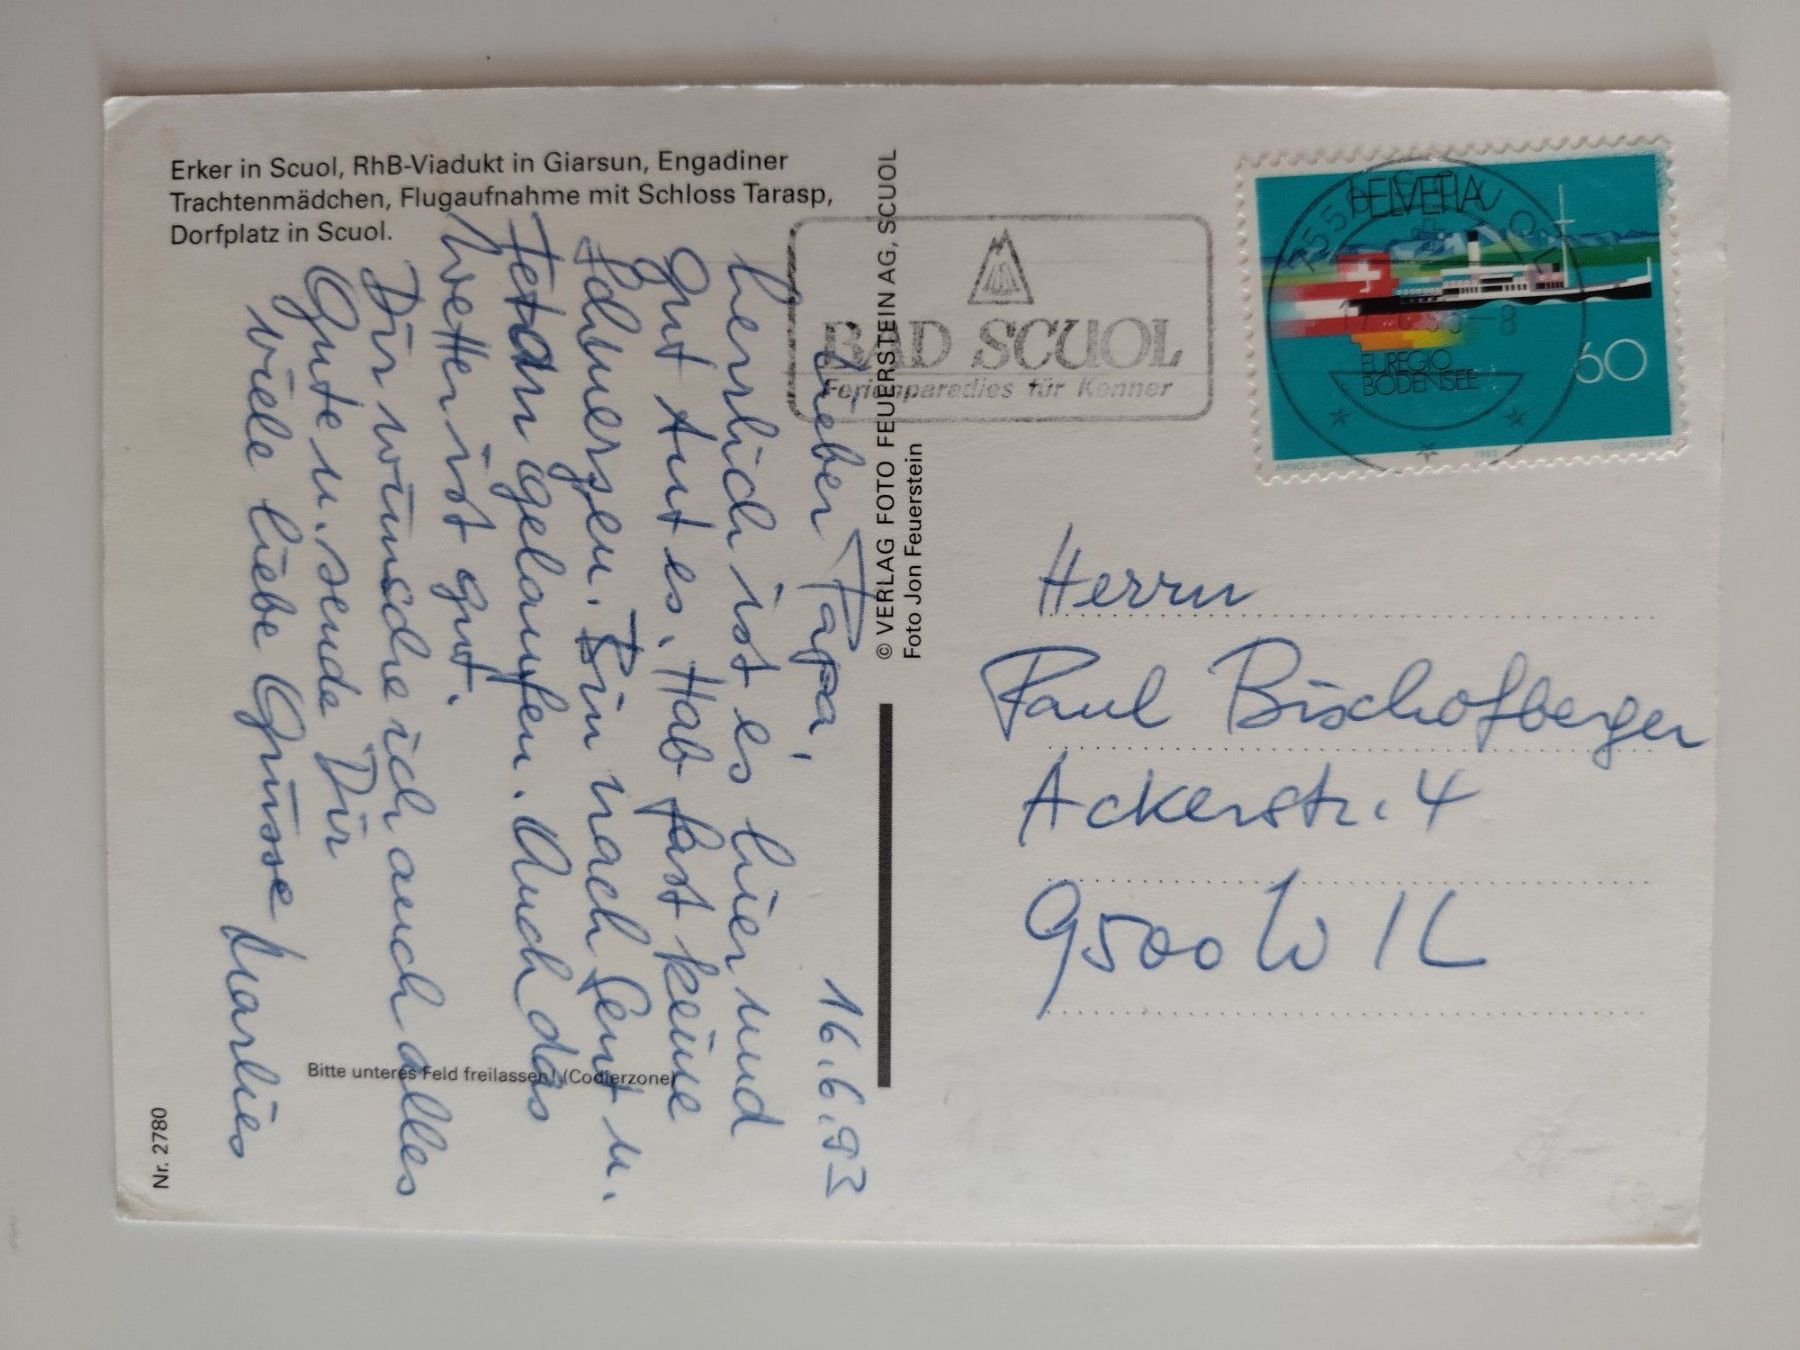 Erker in Scuol, RhB-Viadukt in Giarsun, Engadiner
Trachtenmädchen, Flugaufnahme mit Schloss Tarasp,
Dorfplatz in Scuol.
16.6.93
Lieber Papa,
herrlich ist es hier und
gut tut es. Hab fast keine
Schmerzen. Bin nach Sent u.
Fetan gelaufen. Auch das
Wetter ist gut.
Dir wünsche ich auch alles
Gute u. sende Dir
viele liebe Grüsse Marlies
Bitte unteres Feld freilassen! (Codierzone)
Nr. 2780
© VERLAG FOTO FEUERSTEIN AG, SCUOL
Foto Jon Feuerstein
BAD SCUOL
Ferienparadies für Kenner
HELVETIA
EUREGIO
BODENSEE
60
1993
COURVOISIER
Herrn
Paul Bischofberger
Ackerstr. 4
9500 WIL